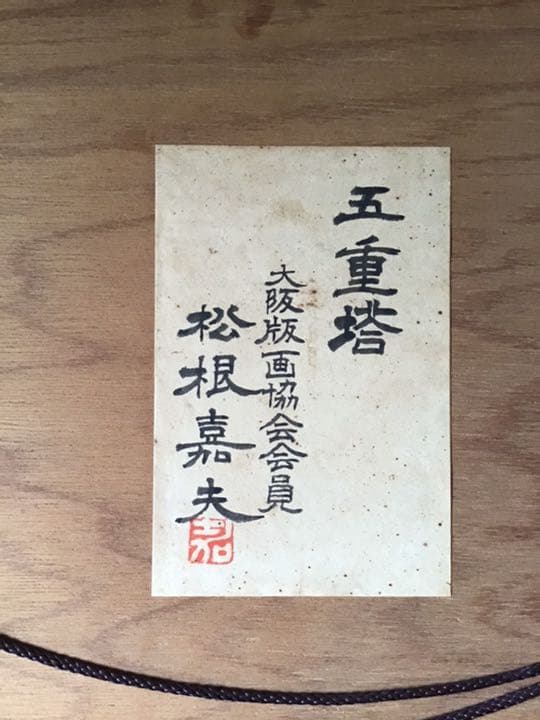 五重塔
大阪版画協会会員
松根嘉夫